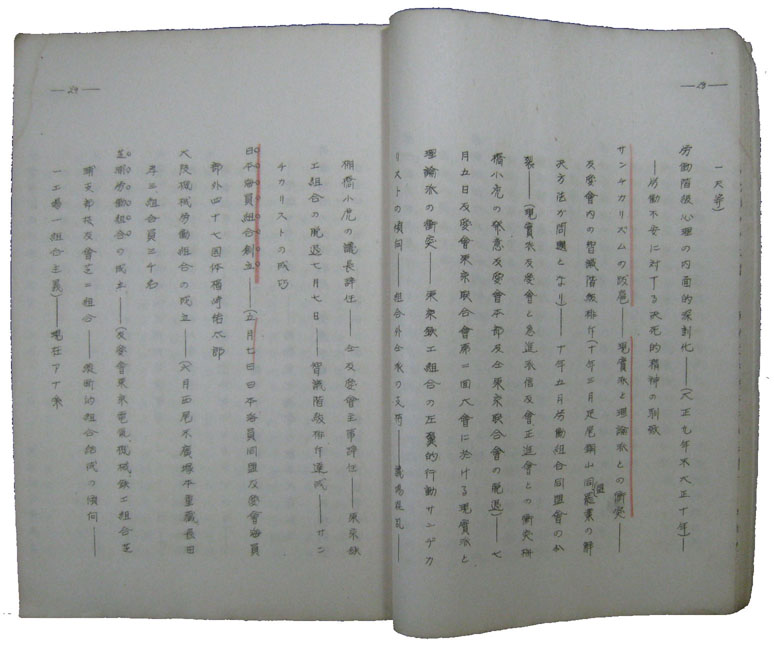 —23—
一天等)
労働階級心理の内面的深刻化——(大正九年末大正十年)—
——労働不安に対する決死的精神の刺
サンヂカリズムの跋扈——現実派と理論派との衝突——
友愛會内の智識階級排斥(十年三月足尾銅山同盟罷業の解
決方法が問題となり)——十年五月労働組合同盟會の分
裂——(現實派友愛會と急進派信友會正進會との衝突 棚
橋小虎の 友愛會本部及 東京联合會の脱退)——七
月五日友愛會東京联合會第二回大會に於ける現實派と
理論派の衝突——東京鉄工組合の左翼的行動サンヂカ
リストの傾向——組合外 の支 ——
—24—
棚橋小虎の議長辞任——仝友愛會主事辞任——東京鉄
工組合の脱退七月七日——智識階級排斥達成——サン
ヂカリストの成功
日本海員組合創立——(五月七日日本海員同盟友愛會海員
部外四十七団体楢崎猪太郎
大阪機械労働組合の成立——(六月西尾末廣塚本重蔵長日
年三組合員三千名
芝浦労働組合の成立——(友愛會東京電気機械鉄工組合芝
浦支部技友會芝工組合——横断的組合組成の傾向——
一工場一組合主義)——現在アナ系